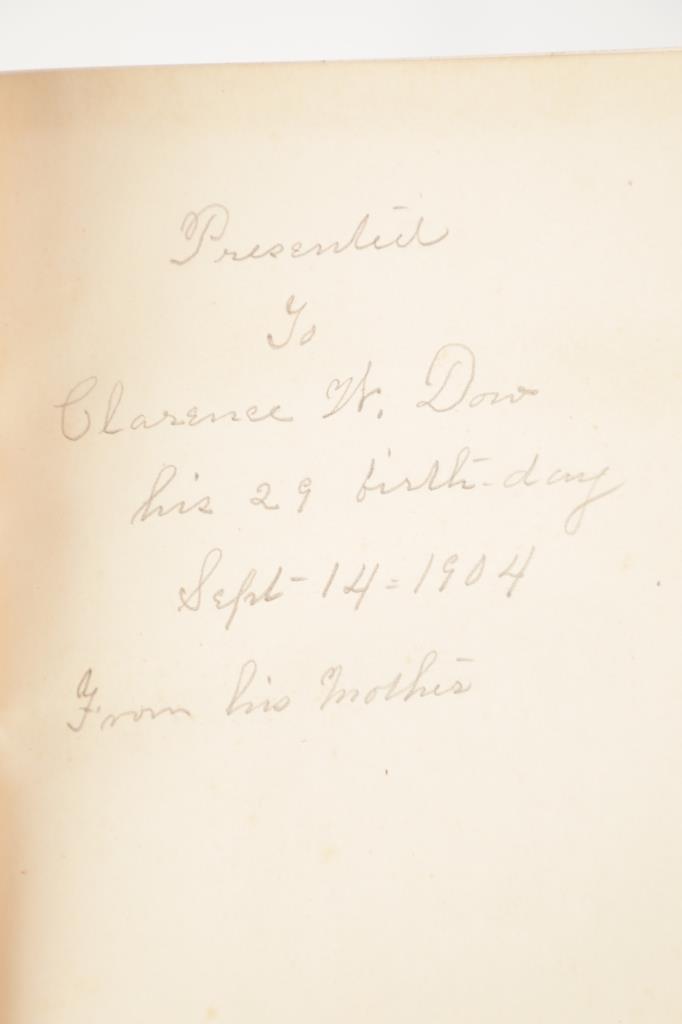 Presented
To
Clarence W. Dow
his 29 birth-day
Sept-14=1904
From his Mother